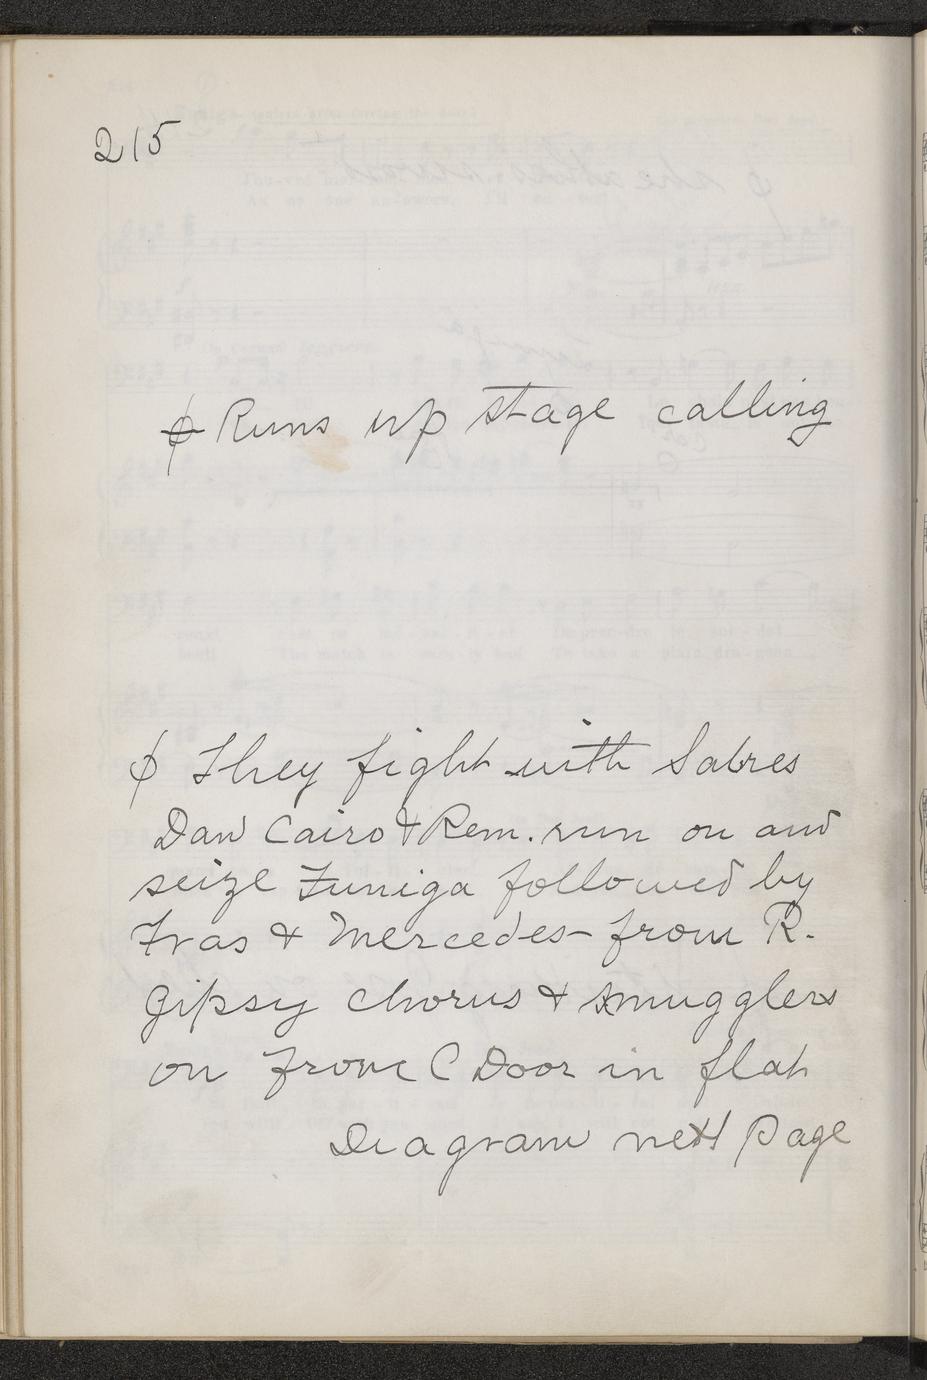 215
ϕ Runs up stage calling
ϕ They fight with Sabres
Dan Cairo & Rem. run on and
seize Zuniga followed by
Fras & Mercedes - from R.
Gipsy chorus & smugglers
on from C Door in flat
Diagram next Page